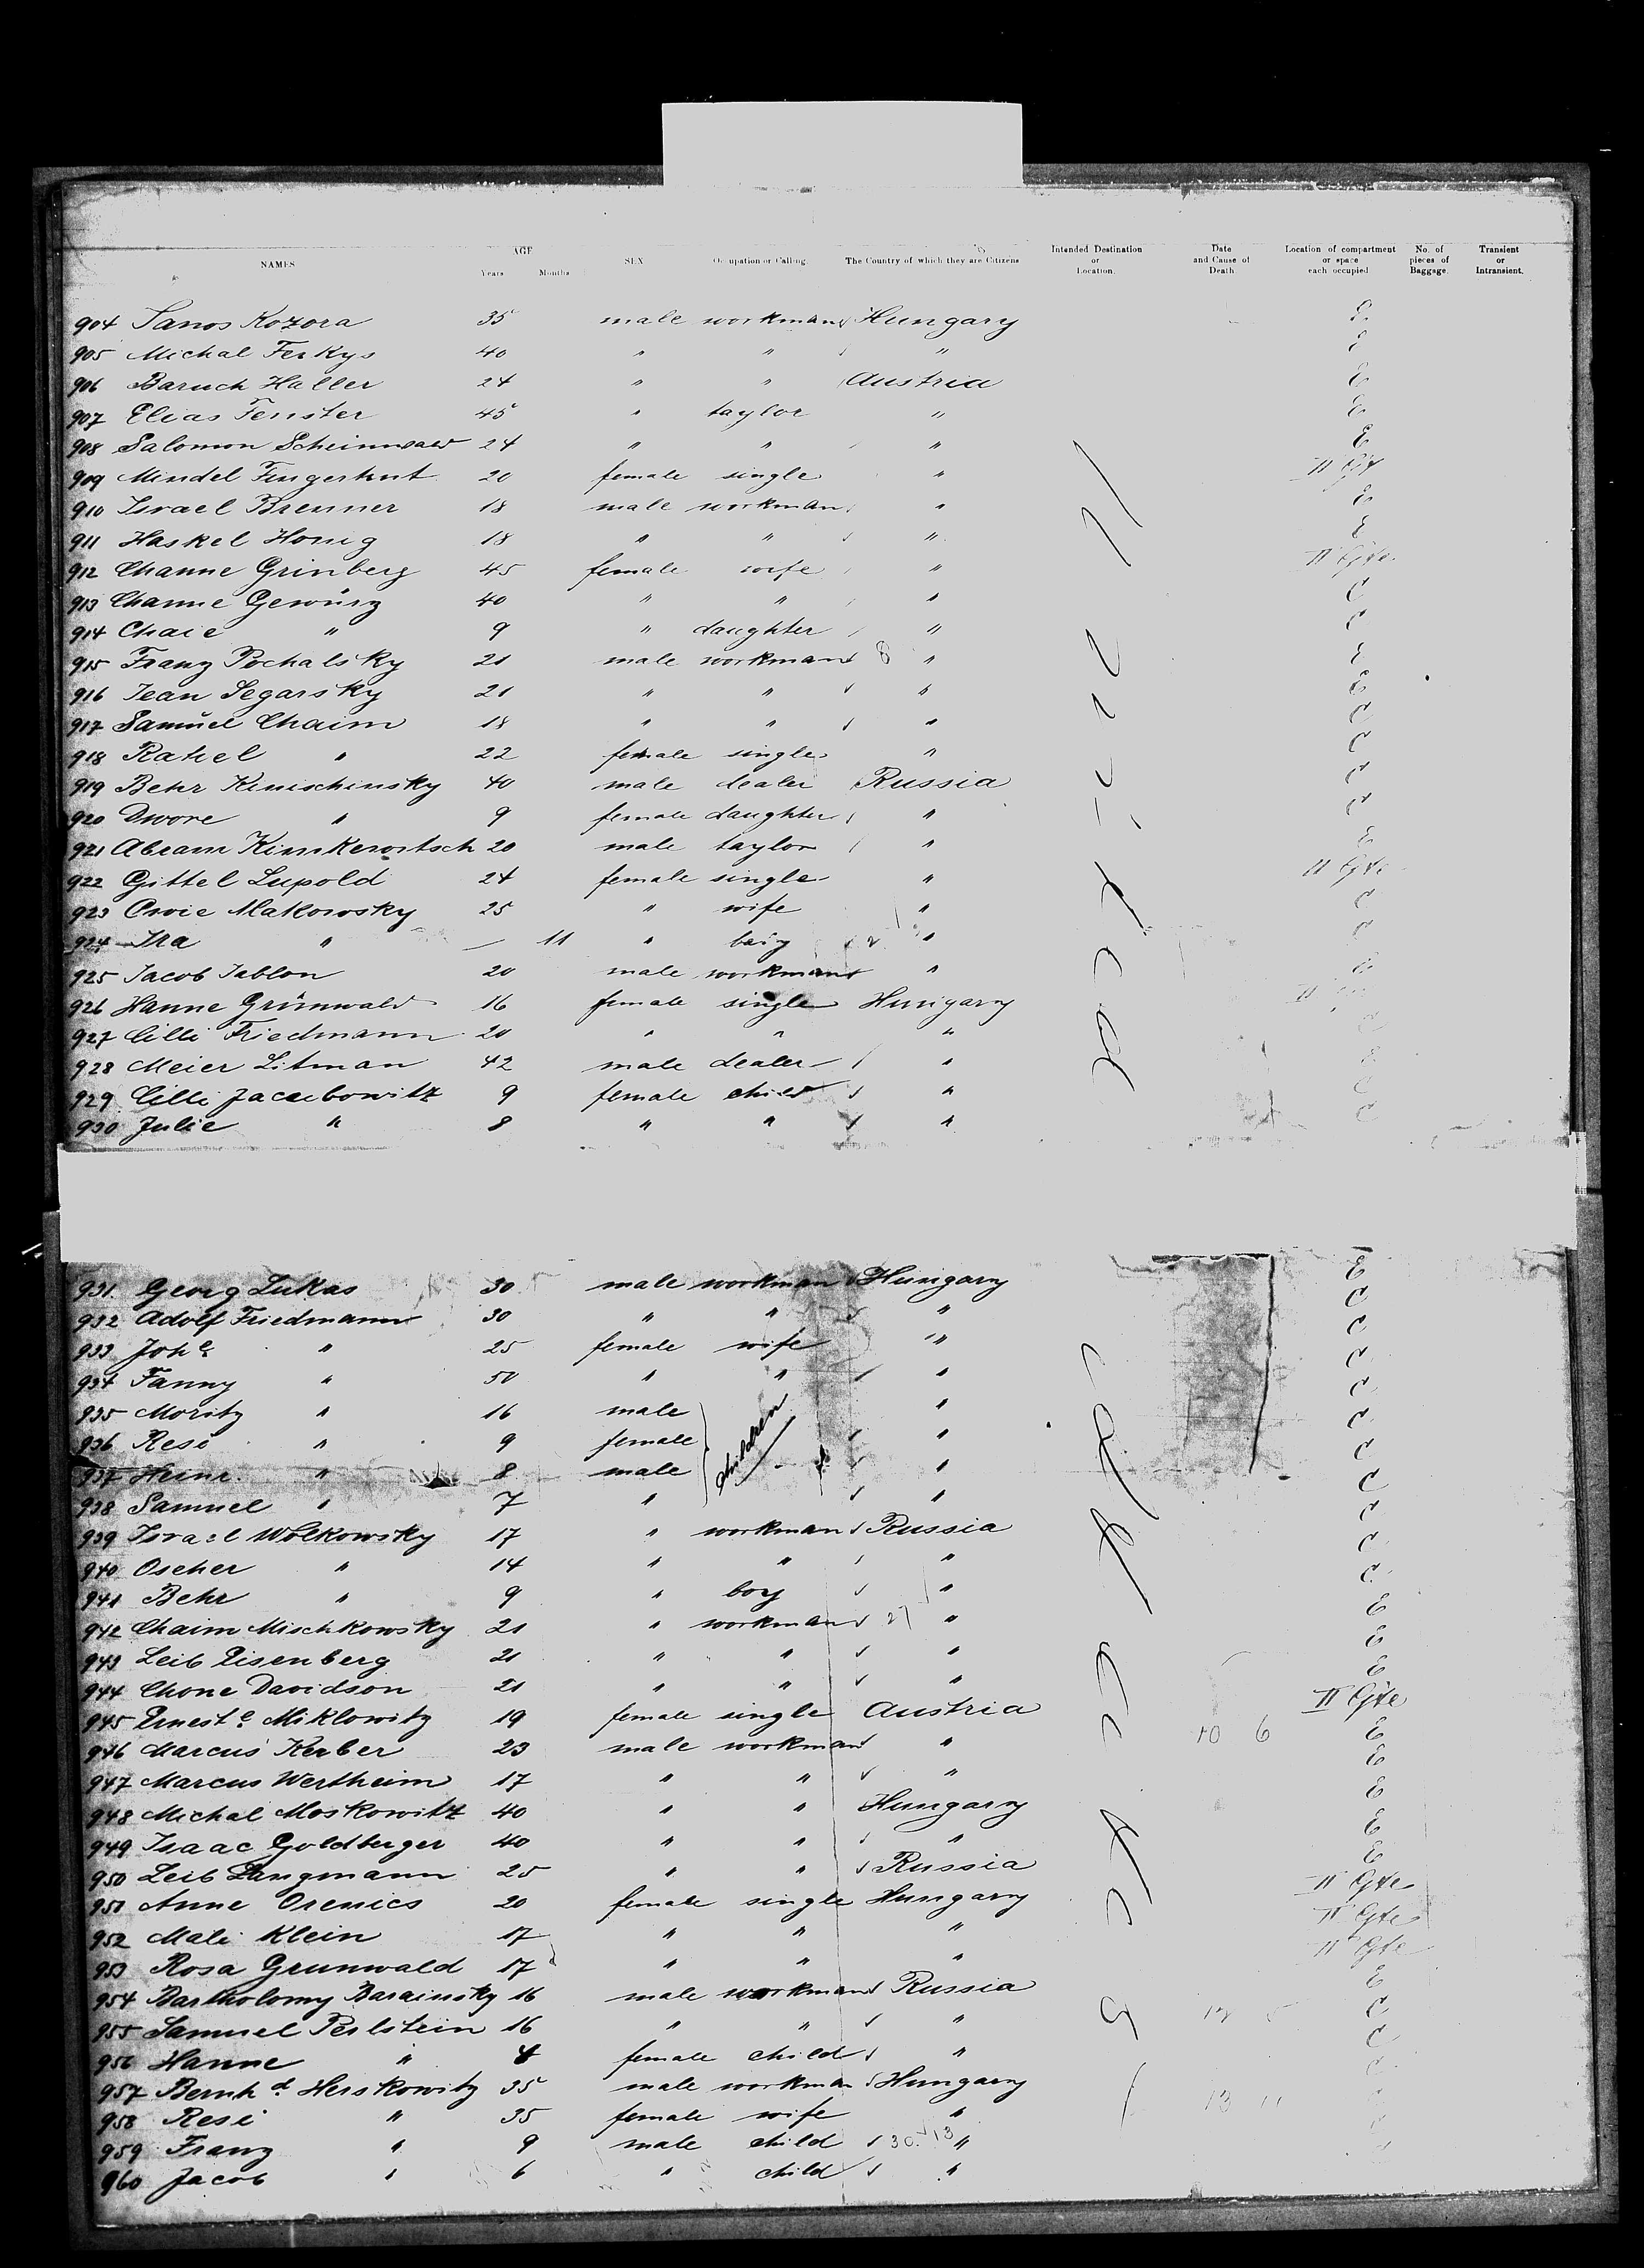 NAMES AGE Years Months SEX Occupation or Calling. The Country of which they are Citizens Intended Destination or Location. Date and Cause of Death Location of compartment or space each occupied No. of pieces of Baggage. Transient or Intransient.
904 Janos Kozora 35 male workman Hungary E
905 Michal Ferkys 40 " " " E
906 Baruch Haller 24 " " Austria E
907 Elias Fenster 45 " taylor " E
908 Salomon Scheinwald 24 " " " E
909 Mindel Fingerhut 20 female single " II Gte
910 Israel Brenner 18 male workman " E
911 Haskel Honig 18 " " " E
912 Channe Grinberg 45 female wife " II Gte
913 Channe Gewürz 40 " " " C
914 Chaie " 9 " daughter " C
915 Franz Pochalsky 21 male workman " E
916 Jean Segarsky 21 " " " E
917 Samuel Chaim 18 " " " C
918 Rahel " 22 female single " C
919 Behr Kinischinsky 40 male dealer Russia C
920 Dwore " 9 female daughter " C
921 Abram Kimkewitsch 20 male taylor " E
922 Gittel Lupold 24 female single " II Gte
923 Owie Makowsky 25 " wife " C
924 Ira " — 11 " " C
925 Jacob Jablon 20 male workman " E
926 Hanne Grünwald 16 female single Hungary II
927 Cilli Friedmann 20 " " " C
928 Meier Litman 42 male dealer " E
929 Cilli Jacubowitz 9 female child " C
930 Julie " 8 " " " C
931 Georg Lukas 30 male workman Hungary E
932 Adolf Friedmann 30 " " " C
933 Johe " 25 female wife " C
934 Fanny " 50 " " " C
935 Moritz " 16 male children " C
936 Resi " 9 female " C
937 Heinr. " 8 male " C
938 Samuel " 7 " " C
939 Israel Wolkowsky 17 " workman Russia C
940 Oscher " 14 " " " C
941 Behr " 9 " boy " C
942 Chaim Mischkowsky 21 " workman 27 " E
943 Leib Eisenberg 21 " " " E
944 Chone Davidson 21 " " " E
945 Erneste Miklowitz 19 female single Austria II Gte
946 Marcus Kerber 23 male workman " 10 6 E
947 Marcus Wertheim 17 " " " E
948 Michal Moskowitz 40 " " Hungary E
949 Isaac Goldberger 40 " " " E
950 Leib Langmann 25 " " Russia E
951 Anne Orenics 20 female single Hungary II Gte
952 Mali Klein 17 " " " II Gte
953 Rosa Grunwald 17 " " " II Gte
954 Bartholomy Barainsky 16 male workman Russia E
955 Samuel Perlstein 16 " " " C
956 Hanne " 4 female child " C
957 Bernhd Herskowitz 35 male workman Hungary C
958 Resi " 35 female wife "
959 Franz " 9 male child 30. 13 "
960 Jacob " 6 " child "